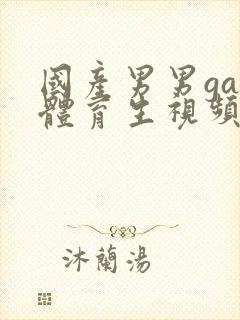 國產男男ga
體育生視頻
沐蘭湯